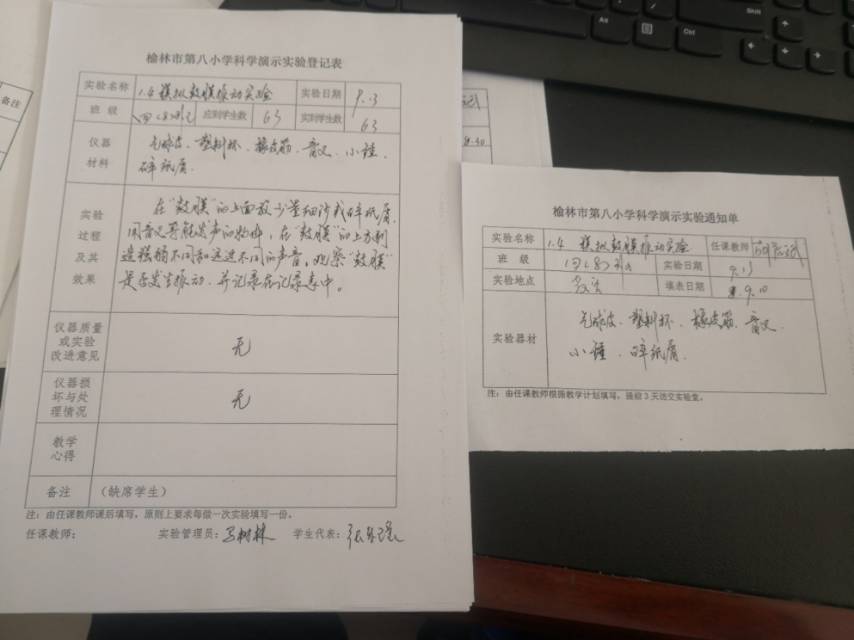 榆林市第八小学科学演示实验登记表
实验名称 1.4 模拟鼓膜振动实验 实验日期 9.13
班 级 四(8)班 应到学生数 63 实到学生数 63
仪器材料 气球皮、塑料杯、橡皮筋、音叉、小锤、
碎纸屑。
实验过程及其效果 在“鼓膜”的上面放少量细沙或碎纸屑,
用音叉等能发声的物体,在“鼓膜”的上方制
造强弱不同和远近不同的声音。观察“鼓膜”
是否发生振动,并记录在记录表中。
仪器质量或实验改进意见 无
仪器损坏与处理情况 无
教学心得
备注 (缺席学生)
注:由任课教师课后填写,原则上要求每做一次实验填写一份。
任课教师: 实验管理员:马树林 学生代表:
榆林市第八小学科学演示实验通知单
实验名称 1.4 模拟鼓膜振动实验 任课教师
班 级 四(8)班 实验日期 9.13
实验地点 教室 填表日期 9.10
实验器材 气球皮、塑料杯、橡皮筋、音叉、
小锤、碎纸屑。
注:由任课教师根据教学计划填写,提前3天送交实验室。
备注